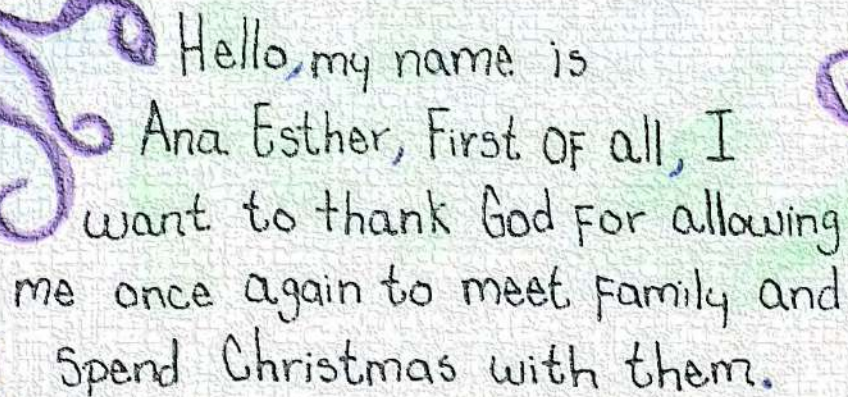 Hello, my name is
Ana Esther, First OF all, I
want to thank God For allowing
me once again to meet Family and
Spend Christmas with them.